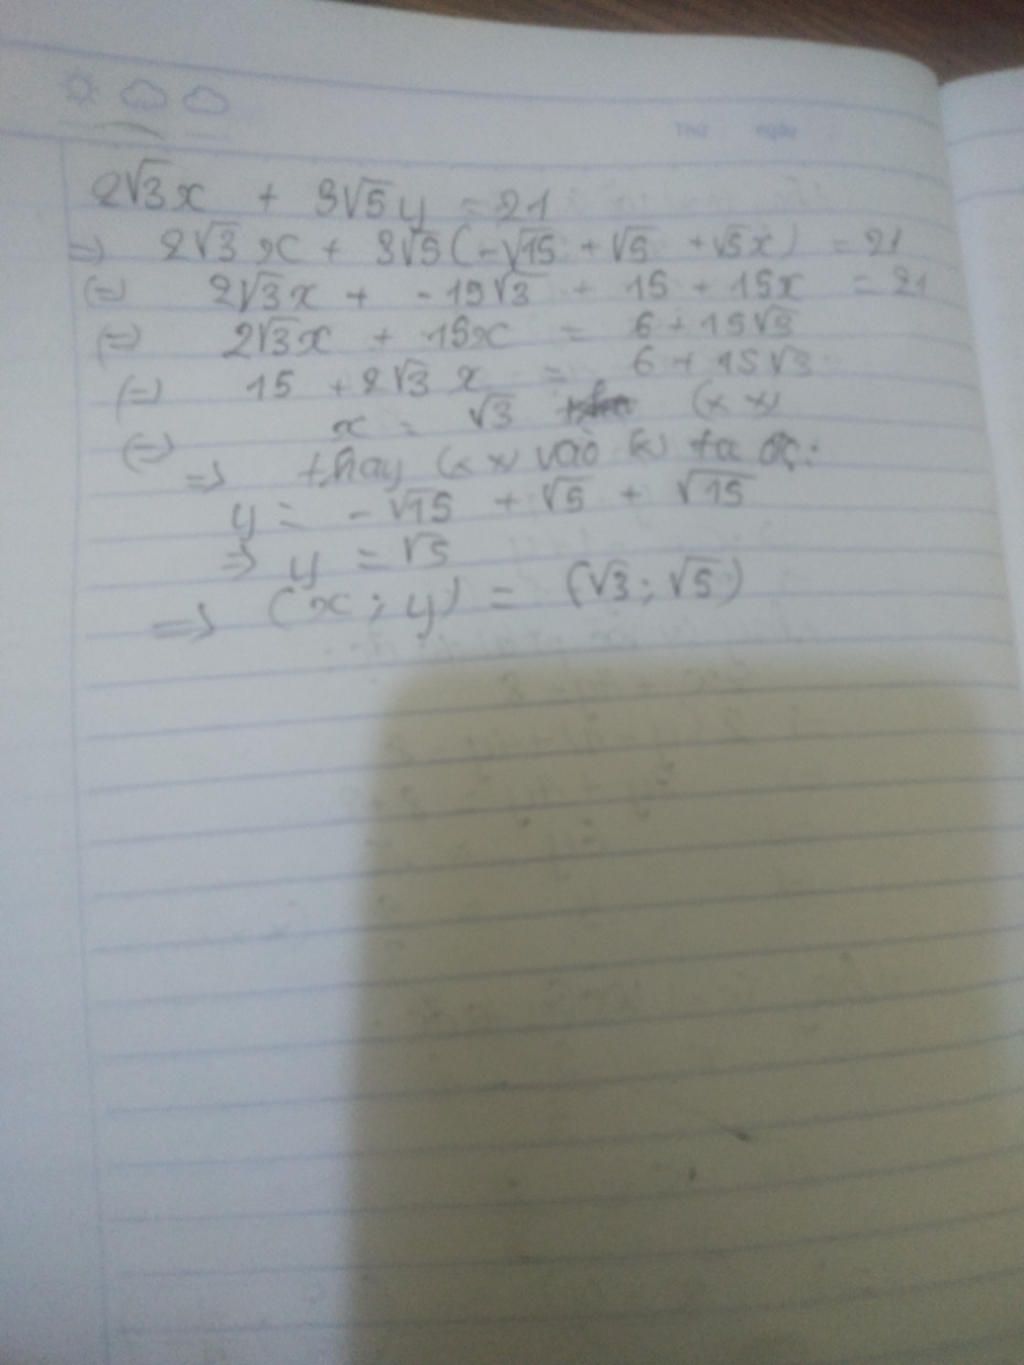 Thứ ngày
2√3x + 3√5y = 21
=> 2√3x + 3√5(-√15 + √5 + √5x) = 21
(=) 2√3x + -15√3 + 15 + 15x = 21
(=) 2√3x + 15x = 6 + 15√3
(=) 15 + 2√3 x = 6 + 15√3
(=) x = √3 (x x)
=> thay (x x) vào (x) ta đc:
y = -√15 + √5 + √15
=> y = √5
=> (x ; y) = (√3 ; √5)